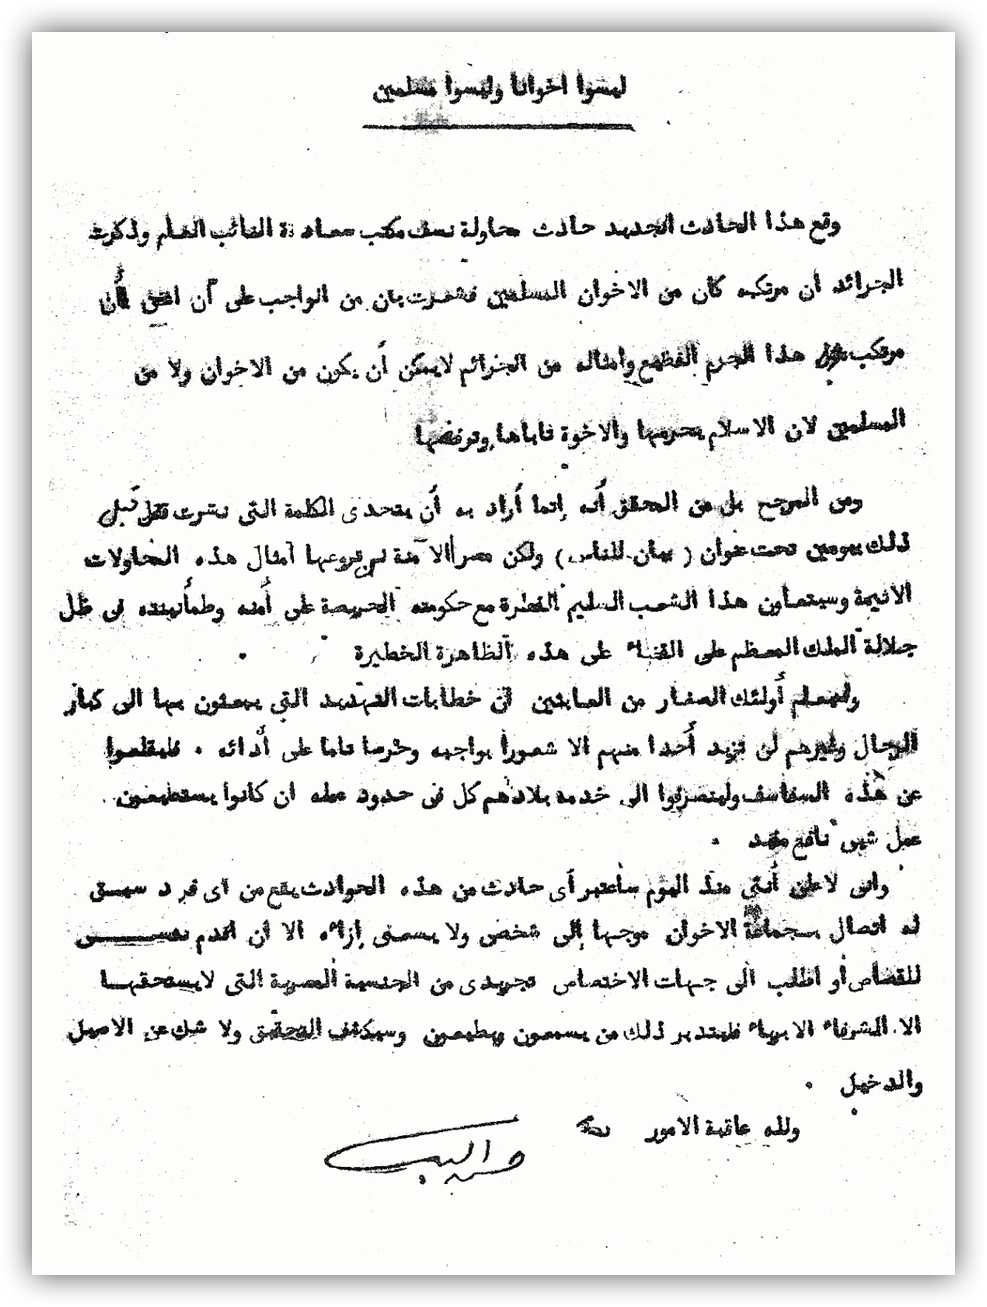 ليسوا اخوانا وليسوا مسلمين
وقع هذا الحادث الجديد حادث محاولة نسف مكتب سعادة النائب العام وذكرت
الجرائد أن مرتكبه كان من الاخوان المسلمين فشعرت بان من الواجب على أن اعلن أن
مرتكب هذا الجرم الفظيع وامثاله من الجرائم لايمكن أن يكون من الاخوان ولا من
المسلمين لان الاسلام يحرمها والاخوة تاباها وترفضها
ومن المرجح بل من المحقق أنه إنما أراد به أن يتحدى الكلمة التى نشرت قبل
ذلك بيومين تحت عنوان ( بيان للناس ) ولكن مصر الآمنة لن تروعها أمثال هذه المحاولات
الاثيمة وسيتعاون هذا الشعب السليم الفطرة مع حكومته الحريصة على أمنه وطمأنينته فى ظل
جلالة الملك المعظم على القضاء على هذه الظاهرة الخطيرة .
وليعلم أولئك الصغار من العابثين ان خطابات التهديد التى يبعثون بها الى كبار
الرجال وغيرهم لن تزيد أحدا منهم الا شعورا بواجبه وحرصا تاما على أدائه . فليقلعوا
عن هذه السفاسف ولينصرفوا الى خدمة بلادهم كل فى حدود عمله ان كانوا يستطيعون
عمل شىء نافع مفيد .
وانى لاعلن أننى منذ اليوم ساعتبر أى حادث من هذه الحوادث يقع من أى فرد سبق
له اتصال بجماعة الاخوان موجها إلى شخصى ولا يسعنى إزاءه الا ان اقدم نفسى
للقصاص أو اطلب الى جهات الاختصاص تجريدى من الجنسية المصرية التى لايستحقها
الا الشرفاء الابرياء فليتدبر ذلك من يسمعون ويطيعون وسيكشف التحقيق ولا شك عن الاصيل
والدخيل .
ولله عاقبة الامور
حسن البنا